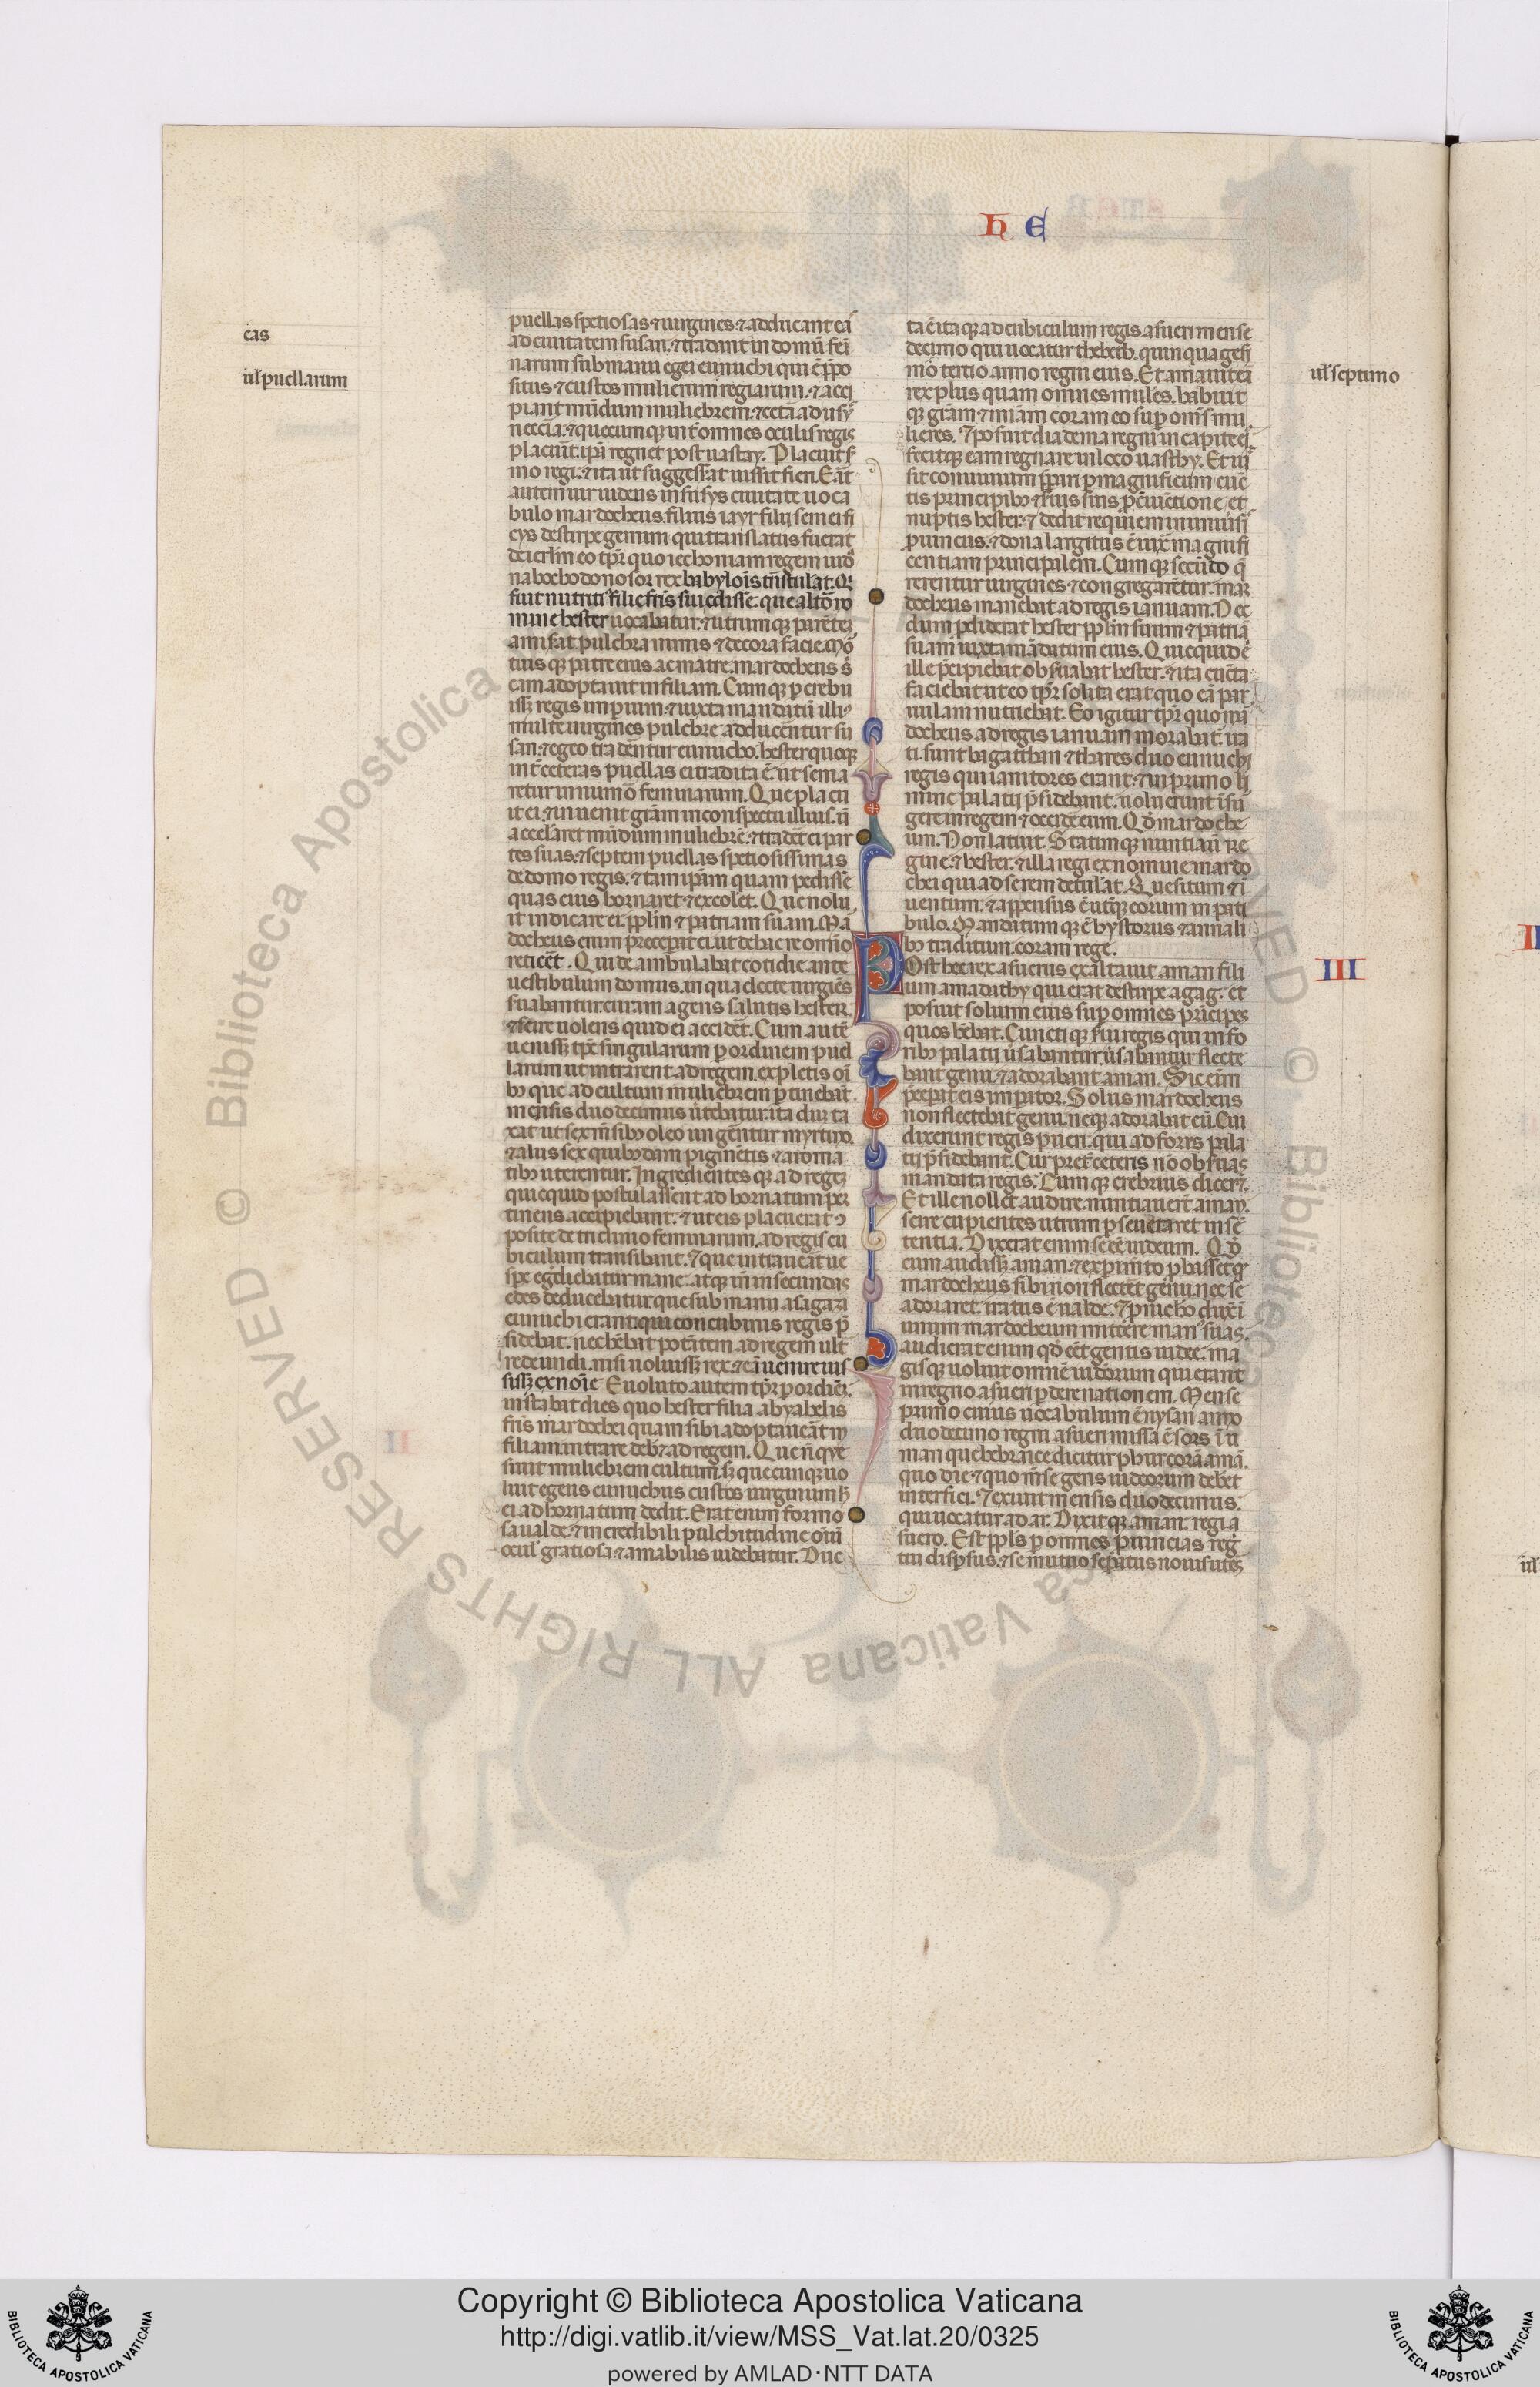 h E
cas
ul̃ puellarum
puellas spetiosas ⁊ uirgines. ⁊ adducant eã
ad ciuitatem susan. ⁊ tradant in domũ femi
narum sub manu egei eunuchi qui ẽ p̃po
situs ⁊ custos mulierum regiarum. ⁊ acci
piant mũdum muliebrem. ⁊ cetã ad usũ
necc̃ia. ⁊ quecumq; int̃ omnes oculis regis
placuit. ip̃a regnet post uastay. Placuit s̃
mo regi. ⁊ ita ut suggess̃at iussit fieri. Erat
autem uir iudeus in susys ciuitate uoca
bulo mardocheus. filius iayr filij semei fi
cys de stirpe gemini qui translatus fuerat
de ierl̃m eo tp̃r quo iechoniam regem iud
nabochodonosor rex babylois tr̃nstulat. Q
fuit nutritꝰ filie fr̃is sui edisse. que alt̃o no
mine hester uocabatur. ⁊ utrumq; parẽtez
amis̃at. pulchra nimis ⁊ decora facie. Mo
tuisq; patre eius ac matre. mardocheus s̃
eam adoptauit in filiam. Cumq; p crebu
iss; regis imperium. ⁊ iuxta mandatũ illiꝰ
multe uirgines pulchre adducentur su
san. ⁊ egeo traderentur eunucho. hester quoq;
int̃ ceteras puellas ei tradita ẽ. ut serua
retur in numo feminarum. Que placu
it ei. ⁊ inuenit grãm in conspectu illius. ũ
accelaret mũdum muliebrẽ. ⁊ tradet ei par
tes suas. ⁊ septem puellas spetiosissimas
de domo regis. ⁊ tam ip̃am quam pedisse
quas eius hornaret ⁊ excolet. Que nolu
it indicare ei. pp̃lm ⁊ patriam suam. Mã
docheus enim preceperat ei. ut de hac re omnio
reticet. Qui deambulabat cotidie ante
uestibulum domus. in qua electe uirgies
s̃uabantur. curam agens salutis hester.
⁊ scire uolens quid ei accidet. Cum autẽ
uenisset tp̃s singularum p ordinem puel
larum ut intrarent ad regem. expletis oĩ
bꝰ que ad cultum muliebrem ptinebãt.
mensis duodecimus ũtebatur. ita dum ta
xat ut sex mensibꝰ oleo ungẽntur myrtino.
⁊ aliis sex quibꝰdam pigmẽtis ⁊ aroma
tibꝰ uterentur. Ingredientesq; ad regez
quicquid postulassent ad hornatum per
tinens accipiebant. ⁊ ut eis placuerat ꝯ
posite de triclinio feminarum. ad regis cu
biculum transibant. ⁊ que intrauerat ue
spe egrediebatur mane. atq; inde in secundas
edes deducebatur. que sub manu asagazi
eunuchi erant. qui concubinis regis p̃
sidebat. nec hebat potatem ad regem ult
redeundi. nisi uoluiss; rex. ⁊ eã uenire ius
siss; ex noie. Euoluto autem tp̃r p ordiez.
instabat dies quo hester filia abyahelis
fr̃is mardochei quam sibi adoptauerat in
filiam. intrare deb; ad regem. Que nõ que
siuit muliebrem cultum. s; quecunq; uo
luit egeus eunuchus custos uirginum h̃
ei ad hornatum dedit. Erat enim formo
sa ualde. ⁊ incredibili pulchritudine omi
ocul̃ gratiosa. ⁊ amabilis uidebatur. Duc
ta ẽ itaq; ad cubiculum regis asueri mense
decimo qui uocatur thebeth. quinquagesi
mo tertio anno regni eius. Et amauit eã
rex plus quam omnes mulẽs. habuit
q; grãm ⁊ miãm coram eo sup omĩs mu
lieres. ⁊ posuit diadema regni in capite eꝰ
fecitq; eam regnare in loco uasthy. Et ius
sit conuiuium pparari pmagnificum cunc
tis principibꝰ ⁊ s̃uis suis p ciunctione et
nuptis hester. ⁊ dedit requiem uniuersis
prouinciis. ⁊ dona largitus ẽ iuxẽ magnifi
centiam principalem. Cumq; secũdo q
rerentur uirgines ⁊ congregarẽtur. mar
docheus manebat ad regis ianuam. Nec
dum pdiderat hester pp̃lm suum ⁊ patriã
suam iuxta mãdatum eius. Quicquid ẽ
ille pcipiebat obs̃uabat hester. ⁊ ita cũcta
faciebat ut eo tp̃r solita erat quo eã par
uulam nutriebat. Eo igitur tp̃r quo mar
docheus ad regis ianuam morabat̃. ira
ti sunt bagatthan ⁊ thares duo eunuchi
regis qui ianitores erant. ⁊ in primo li
mine palatij p̃sidebant. uoluerunt insur
gere in regem ⁊ occidẽ eum. Qd̃ mardoche
um. Non latuit. Statimq; nuntiaũ re
gine. ⁊ hester. ⁊ illa regi ex nomine mardo
chei qui ad se rem detulat. Quesitum ⁊ i
uentum. ⁊ appensus ẽ utq; eorum in pati
bulo. Mandatumq; ẽ hystorus ⁊ annali
bꝰ traditum. coram rege.
Post hec rex asuerus exaltauit aman fili
um amadathy qui erat de stirpe agag. et
posuit solium eius sup omnes principes
quos hẽbat. Cunctiq; s̃ui regis qui in fo
ribꝰ palatij ũsabantur. ũsabantur flecte
bant genu. ⁊ adorabant aman. Sic enim
p̃cepat eis imperator. Solus mardocheus
non flectebat genu. neq; adorabat eũ. Cui
dixerunt regis pueri. qui ad fores pala
tij p̃sidebant. Cur pret̃ ceteris nõ obs̃uas
mandata regis. Cumq; crebrius dicer̃t.
Et ille nollet audire. nuntiauert̃ aman.
scire cupientes utrum pseueraret in sen
tentia. Dixerat enim se eẽ iudeum. Qd̃
cum audiss; aman. ⁊ expimẽto pbasset q̃
mardocheus sibi non flectet genu. nec se
adoraret. iratus ẽ ualde. ⁊ p nichõ duxi
unum mardocheum mittere manꝰ suas.
audierat enim qd̃ eẽt gentis iudee. ma
gisq; uoluit omnẽ iudeorum qui erant
in regno asueri pdere nationem. Mense
primo cuius uocabulum ẽ nysan anno
duodecimo regni asueri missa ẽ sors in ur
nam que hebraice dicitur phur corã amã.
quo die ⁊ quo mẽse gens iudeorum debet
interfici. ⁊ exiuit mensis duodecimus.
qui uocatur adar. Dixitq; aman. regi a
suero. Est pp̃ls p omnes puincias reg̃
tui dispsus. ⁊ se mutuo sepatus nouis utẽs
ul̃ septimo
III
Copyright © Biblioteca Apostolica Vaticana
http://digi.vatlib.it/view/MSS_Vat.lat.20/0325
powered by AMLAD·NTT DATA
BIBLIOTECA APOSTOLICA VATICANA
BIBLIOTECA APOSTOLICA VATICANA
© Biblioteca Apostolica Vaticana ALL RIGHTS RESERVED